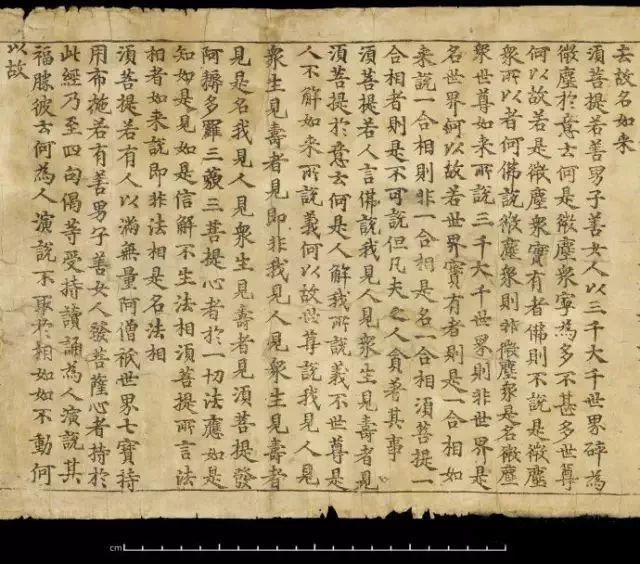 去故名如来
湏菩提若善男子善女人以三千大千世界碎為
微塵於意云何是微塵衆寧為多不甚多世尊
何以故若是微塵衆實有者佛則不說是微塵
衆所以者何佛說微塵衆則非微塵衆是名微塵
衆世尊如来所說三千大千世界則非世界是
名世界何以故若世界實有者則是一合相如
来說一合相則非一合相是名一合相湏菩提一
合相者則是不可說但凡夫之人貪著其事
湏菩提若人言佛說我見人見衆生見壽者見
湏菩提於意云何是人解我所說義不世尊是
人不解如来所說義何以故世尊說我見人見
衆生見壽者見即非我見人見衆生見壽者
見是名我見人見衆生見壽者見湏菩提發
阿耨多羅三藐三菩提心者於一切法應如是
知如是見如是信解不生法相湏菩提所言法
相者如来說即非法相是名法相
湏菩提若有人以滿無量阿僧祇世界七寶持
用布施若有善男子善女人發菩薩心者持於
此經乃至四句偈等受持讀誦為人演說其
福勝彼云何為人演說不取於相如如不動何
以故
cm